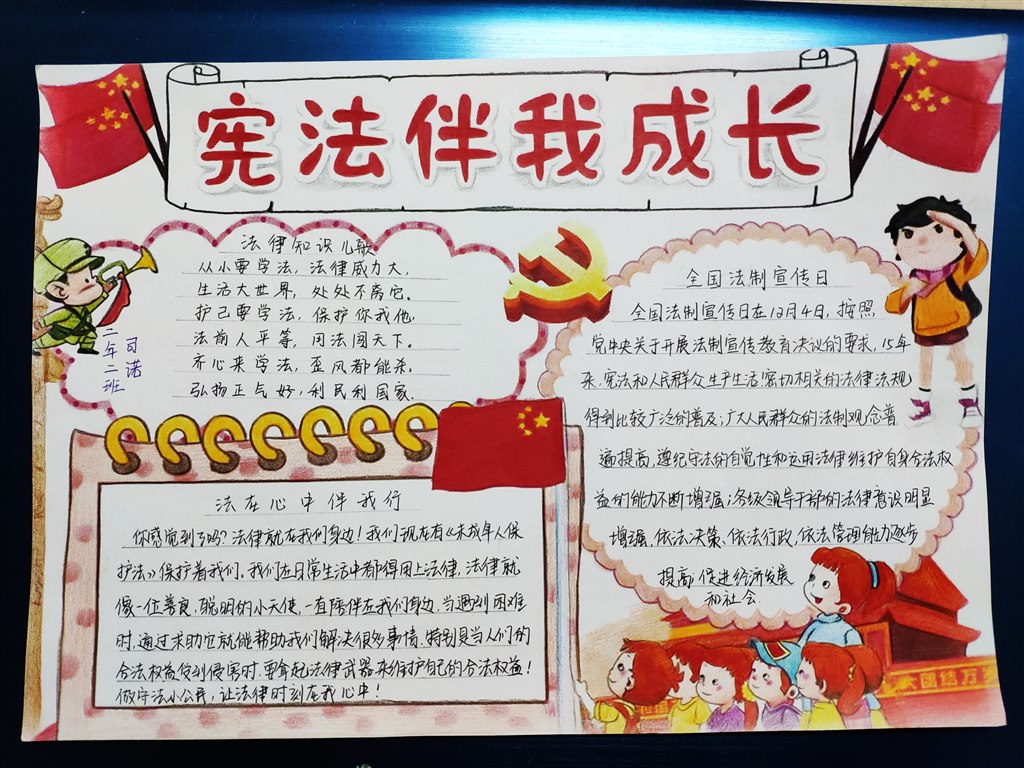 宪法伴我成长
法律知识儿歌
从小要学法，法律威力大，
生活大世界，处处不离它。
护己要学法，保护你我他，
法前人平等，用法闯天下。
齐心来学法，歪风都能杀。
弘扬正气好，利民利国家.
二年二班
司诺
全国法制宣传日
全国法制宣传日在12月4日，按照
党中央关于开展法制宣传教育决议的要求，15年
来，宪法和人民群众生产生活密切相关的法律法规
得到比较广泛的普及；广大人民群众的法制观念普
遍提高，遵纪守法的自觉性和运用法律维护自身合法权
益的能力不断增强；各级领导干部的法律意识明显
增强、依法决策、依法行政，依法管理能力逐步
提高；促进经济发展
和社会.
法在心中伴我行
你感觉到了吗？法律就在我们身边！我们现在有《未成年人保
护法》保护着我们。我们在日常生活中都得用上法律，法律就
像一位善良、聪明的小天使，一直陪伴在我们身边，当遇到困难
时，通过求助它就能帮助我们解决很多事情，特别是当人们的
合法权益受到侵害时，要拿起法律武器来维护自己的合法权益！
做守法小公民，让法律时刻在我心中！